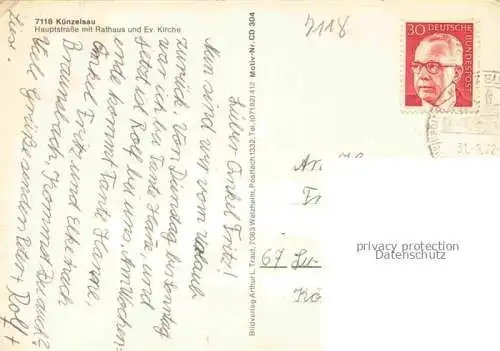 7118 Künzelsau
Hauptstraße mit Rathaus und Ev. Kirche
7118
Lieber Onkel Fritz!
Nun sind wir vom Urlaub
zurück. Von Dienstag bis Sonntag
war ich bei Tante Hanne, und
jetzt ist Rolf bei uns. Am Wochen-
ende kommt Tante Hanne,
Onkel Fritz und Elke nach
Braunsbach. Kommst Du auch?
Viele Grüße senden Peter + Rolf +
Bildverlag Arthur L. Trast, 7063 Welzheim, Postfach 1332, Tel. (07182) 412 Motiv-Nr. CD 304
30 DEUTSCHE
BUNDESPOST
67 Lu
privacy protection
VANDKARTEN.DE